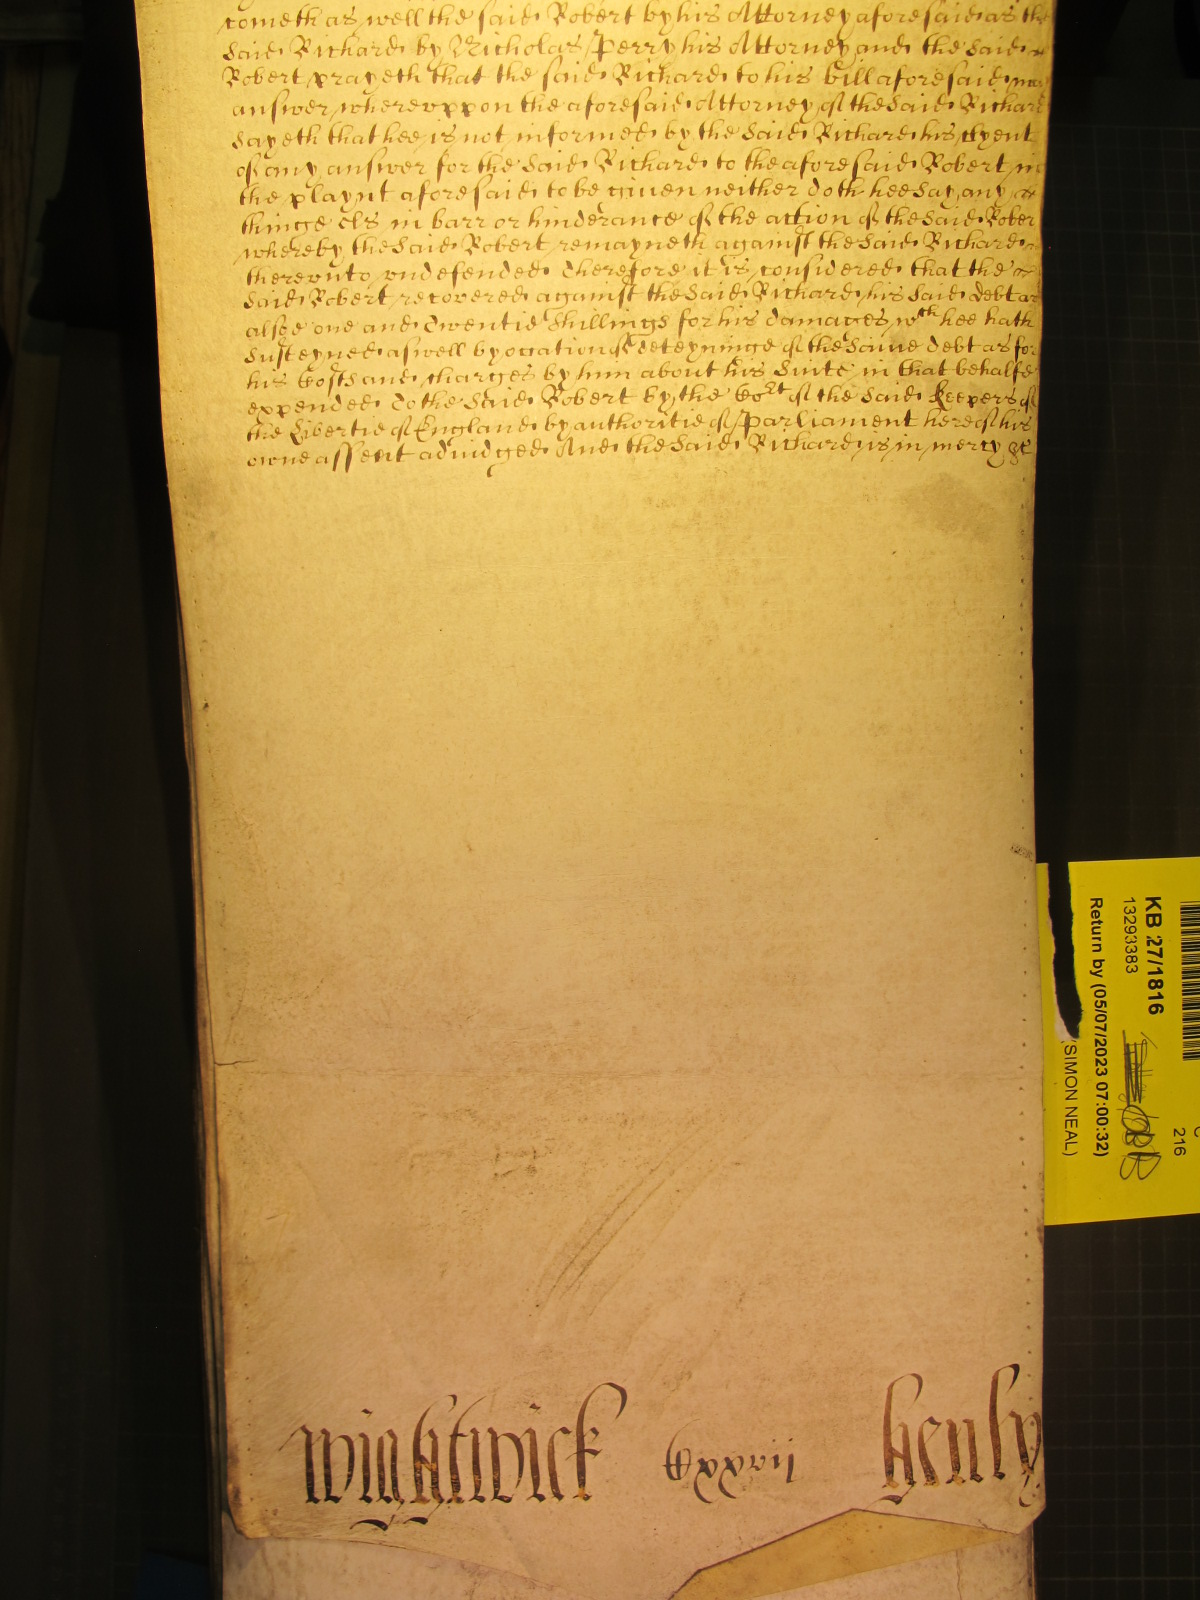 cometh as well the said Robert by his Attorney aforesaid as the
said Richard by Nicholas Perry his Attorney and the said
Robert prayeth that the said Richard to his bill aforesaid may
answer whereuppon the aforesaid Attorney of the said Richard
sayeth that hee is not informed by the said Richard his clyent
of any answer for the said Richard to the aforesaid Robert in
the playnt aforesaid to be given neither doth hee say any
thinge els in barr or hinderance of the action of the said Rober
whereby the said Robert remayneth against the said Richard
thereunto undefended Therefore it is considered that the
said Robert recovered against the said Richard his said debt and
alsoe one and Twentie shillings for his damages wch hee hath
susteyned aswell by occation of deteyninge of the same debt as for
his Costs and charges by him about his suite in that behalfe
expended To the said Robert by the Cort of the said Keepers of
the Libertie of England by authoritie of Parliament here of his
owne assent adiudged And the said Richard is in mercy &c
Wightwick xxvii Henly
KB 27/1816
13293383
Return by (05/07/2023 07:00:32)
(SIMON NEAL)
216